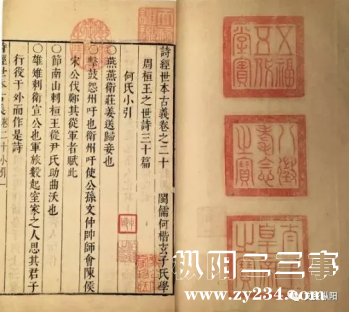 五福五代堂寶
八徵耄念之寶
太上皇帝之寶
詩經世本古義卷之二十
閩儒何楷玄子氏學
周桓王之世詩三十篇
何氏小引
○燕燕衛莊姜送歸妾也
○擊鼓怨州吁也衛州吁使公孫文仲帥師會陳侯
宋公伐鄭從軍者賦此
○節南山刺桓王從尹氏助曲沃也
○雄雉刺衛宣公也軍旅數起室家之人思其君子
行役于外而作是詩
詩經世本古義 卷二十小引 一
枞阳二三事
www.zy234.com